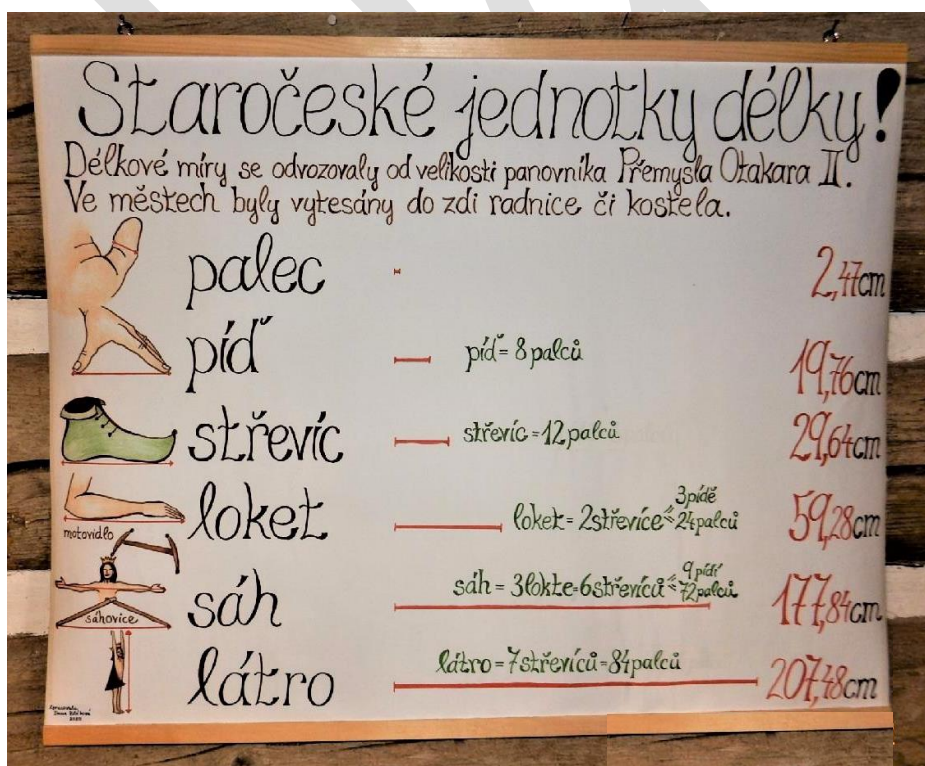 Staročeské jednotky délky!
Délkové míry se odvozovaly od velikosti panovníka Přemysla Otakara II.
Ve městech byly vytesány do zdi radnice či kostela.
palec 2,47cm
píď píď = 8 palců 19,76cm
střevíc střevíc = 12 palců 29,64cm
3 pídě
loket loket = 2 střevíce = 24 palců 59,28cm
motovidlo
9 pídí
sáh sáh = 3 lokte = 6 střevíců = 72 palců 177,84cm
sáhovice
látro látro = 7 střevíců = 84 palců 207,48cm
Zpracovala